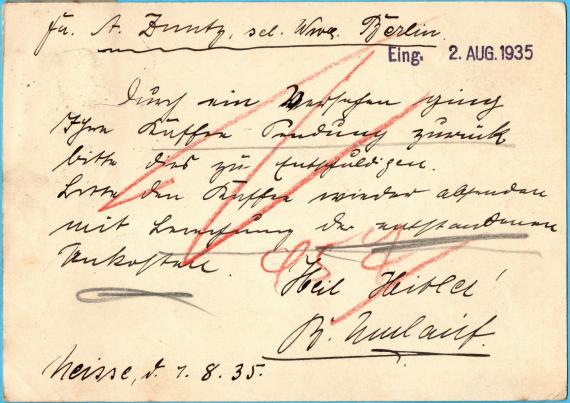 Fa. A. Zuntz, sel. Wwe. Berlin.
Eing. 2. AUG. 1935
Durch ein Versehen ging
Ihre Kaffee-Sendung zurück
bitte dies zu entschuldigen.
Bitte den Kaffee wieder absenden
mit Berechnung der entstandenen
Unkosten.
Heil Hitler!
Neisse, d. 1.8.35.